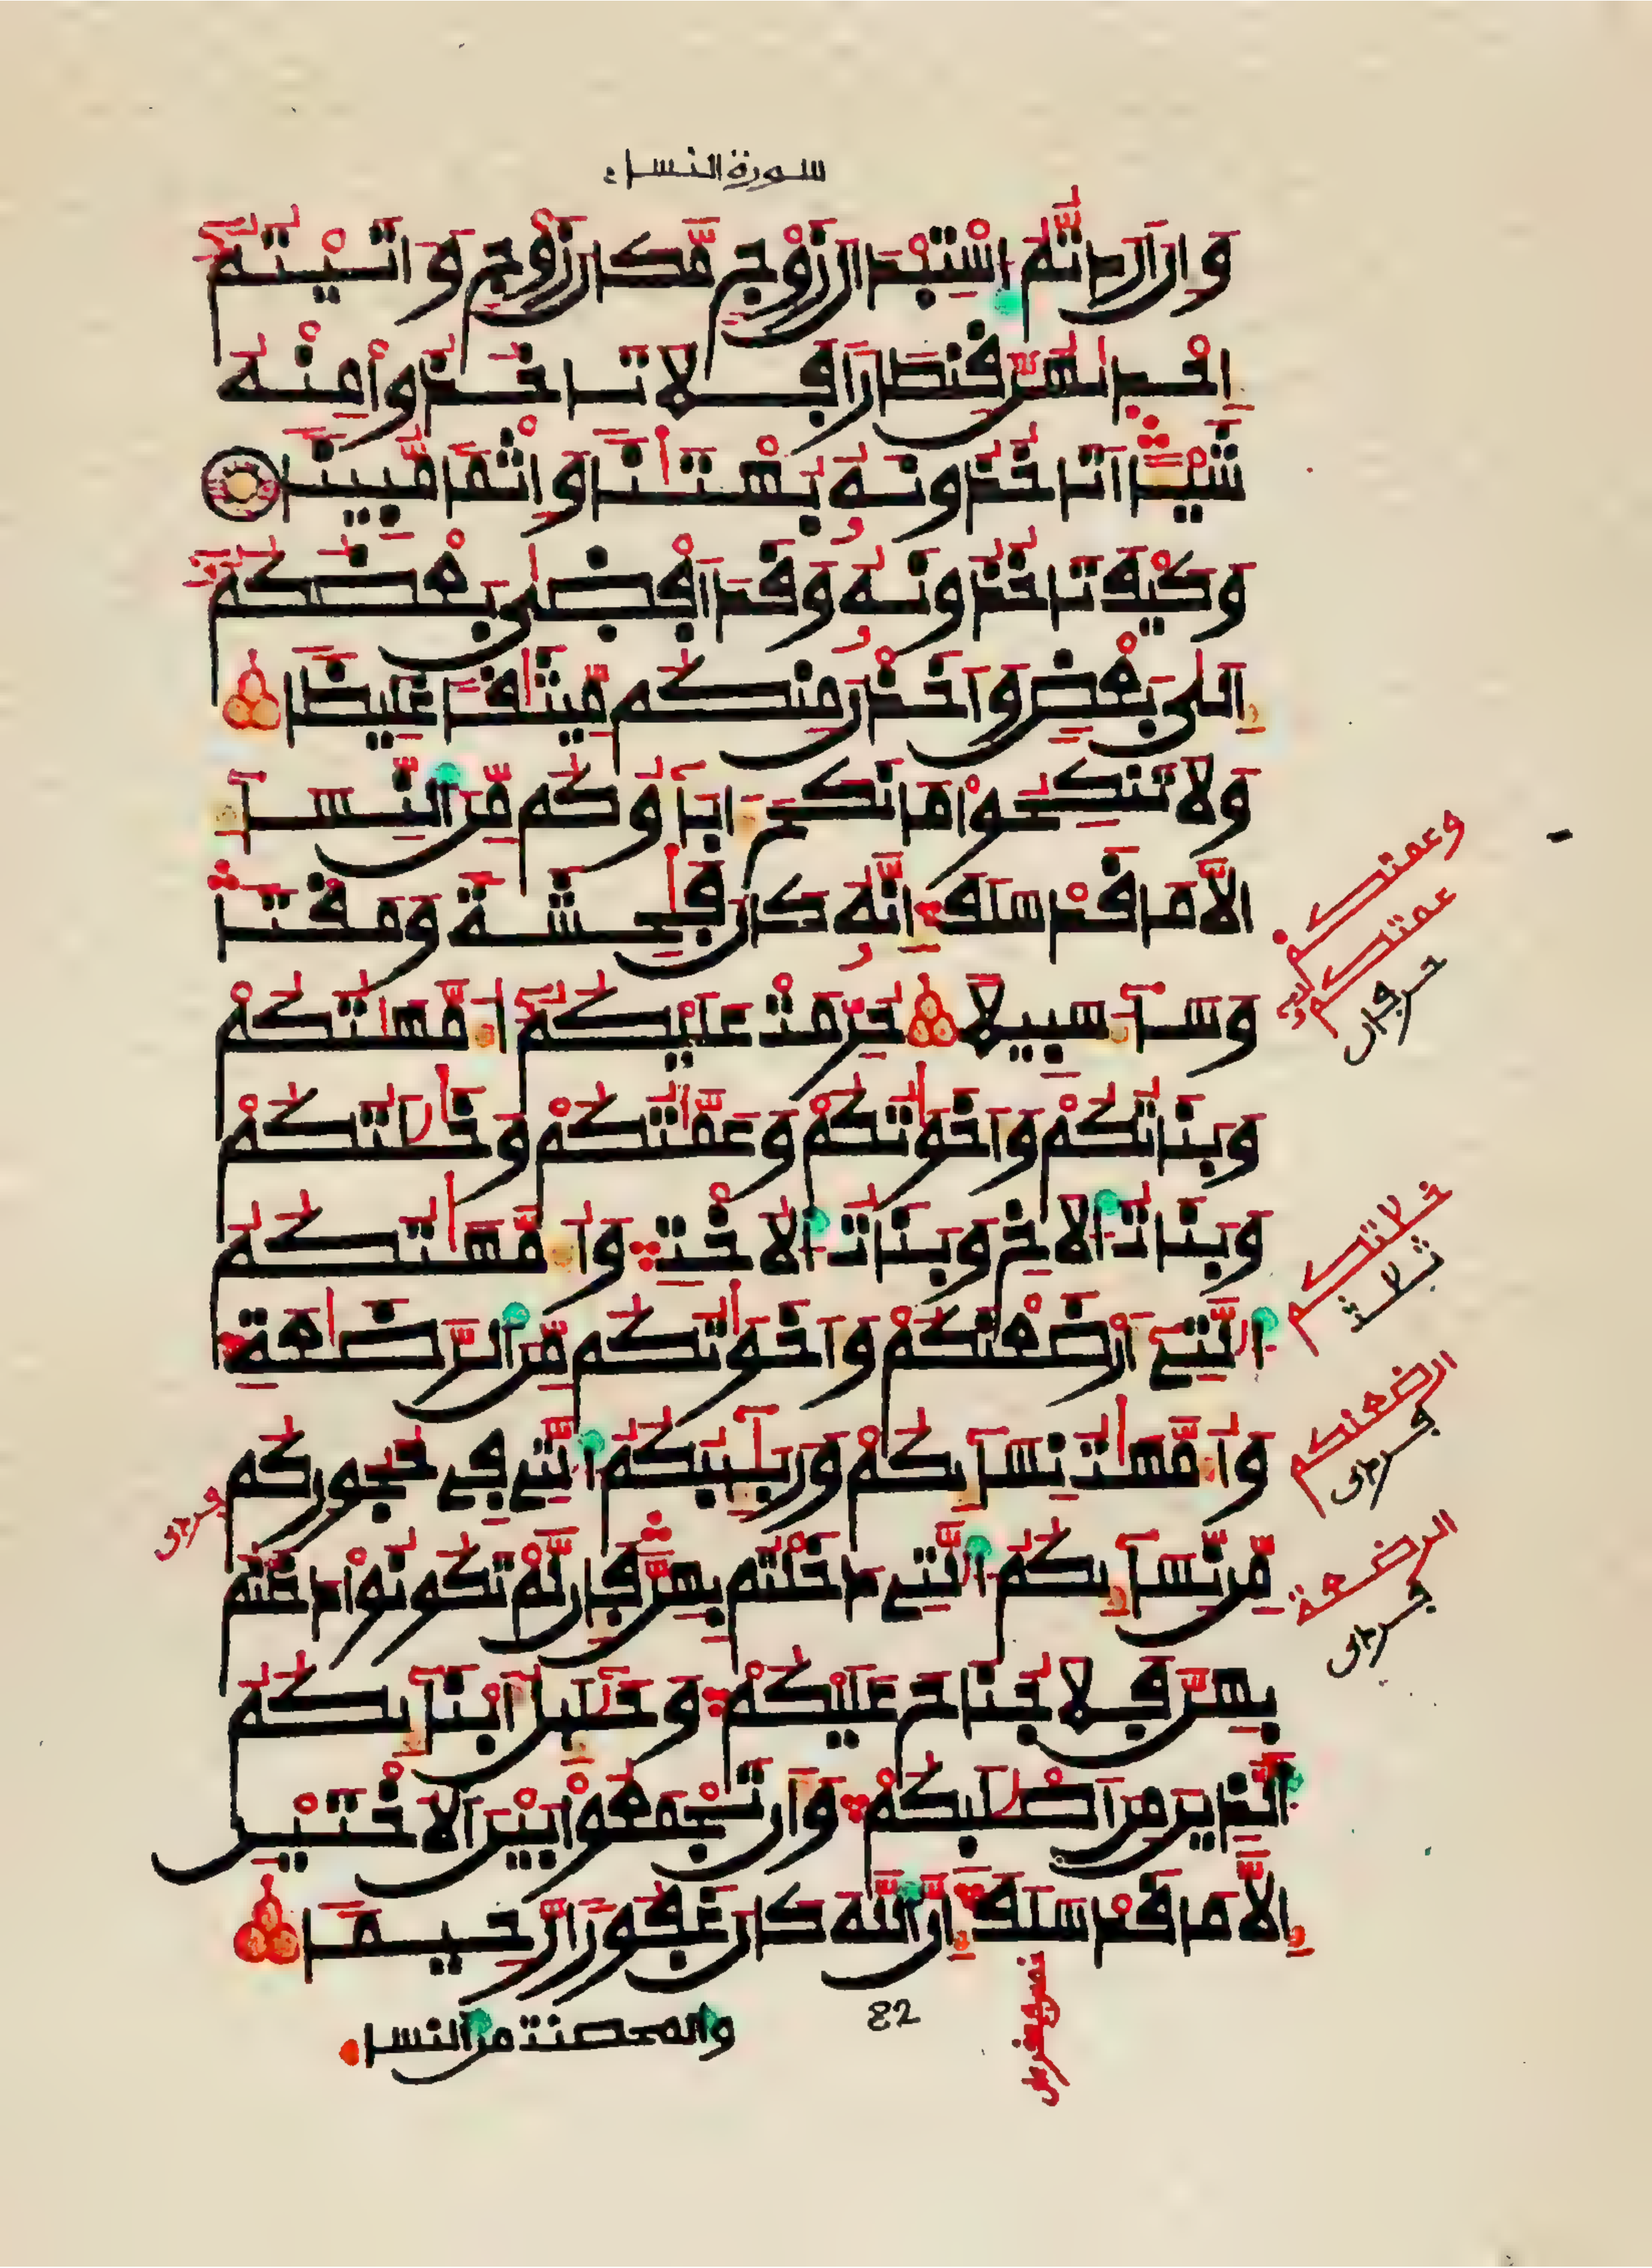 سورة النساء
وإن اردتم استبدال زوج مكان زوج وءاتيتم
إحديهن قنطارا فلا تاخذوا منه
شيئا اتاخذونه بهتنا وإثما مبينا
وكيف تاخذونه وقد افضى بعضكم
إلى بعض وأخذن منكم ميثقا غليظا
ولا تنكحوا ما نكح ءاباؤكم من النساء
إلا ما قد سلف إنه كان فحشة ومقتا
وساء سبيلا حرمت عليكم أمهتكم
وبناتكم وأخوتكم وعمتكم وخلتكم
وبنات الاخ وبنات الاخت وأمهتكم
التے أرضعنكم وأخوتكم من الرضعة
وأمهت نسائكم وربئبكم التے فے حجوركم
من نسائكم التے دخلتم بهن فإن لم تكونوا دخلتم
بهن فلا جناح عليكم وحلئل أبنائكم
الذين من اصلبكم وأن تجمعوا بين الاختين
إلا ما قد سلف إن الله كان غفورا رحيما
82
والمحصنت من النسا
وعمتكم
عمتكم
خلاتكم
ثلاثة
ارضعنكم
الرضعة